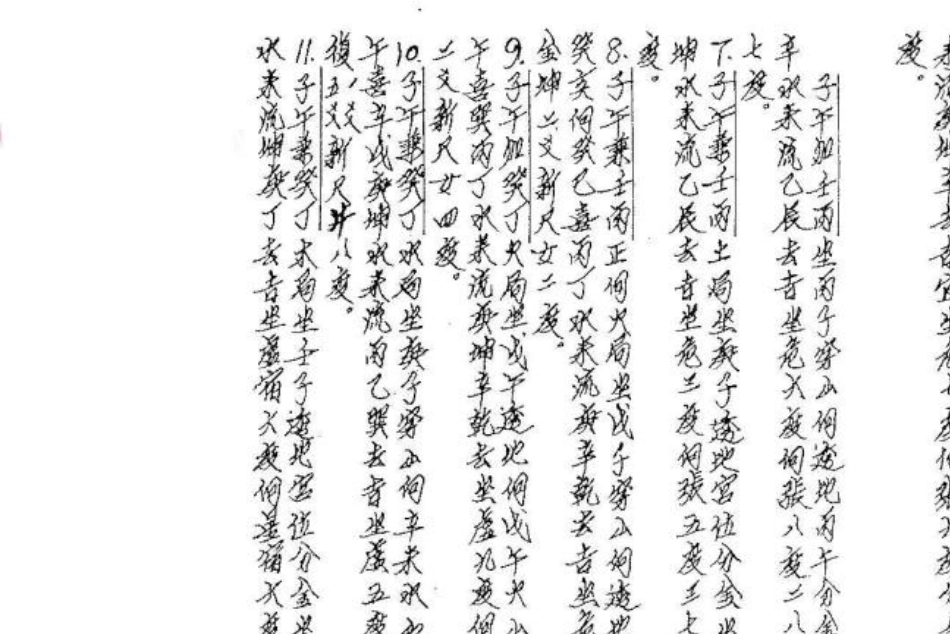 度。
子午加壬丙坐丙子穿山向透地丙午分金
辛水来流乙辰去吉坐危六度向張八度二八
七度。
7.子午兼壬丙土局坐庚子透地宮位分金坐
坤水来流乙辰去吉坐危二度向張五度三七
度。
8.子午兼壬丙正向火局坐戊子穿山向透地
癸亥向癸巳喜丙丁水来流庚辛乾去吉坐危
金坤二爻新尺女二度。
9.子午加癸丁火局坐戊午透地向戊午火山
午喜巽丙丁水来流庚坤辛乾去坐虛九度向
二爻新尺女四度。
10.子午兼癸丁水局坐庚子穿山向辛未水山
午喜辛戌庚坤水来流丙乙巽去吉坐虛五度
復五爻新尺井八度。
11.子午兼癸丁木局坐壬子透地宮位分金坐
水来流坤庚丁去吉坐虛宿六度向星宿六度